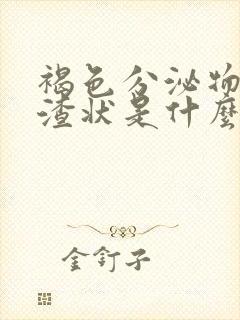 褐色分泌物
渣状是什麼
金钉子